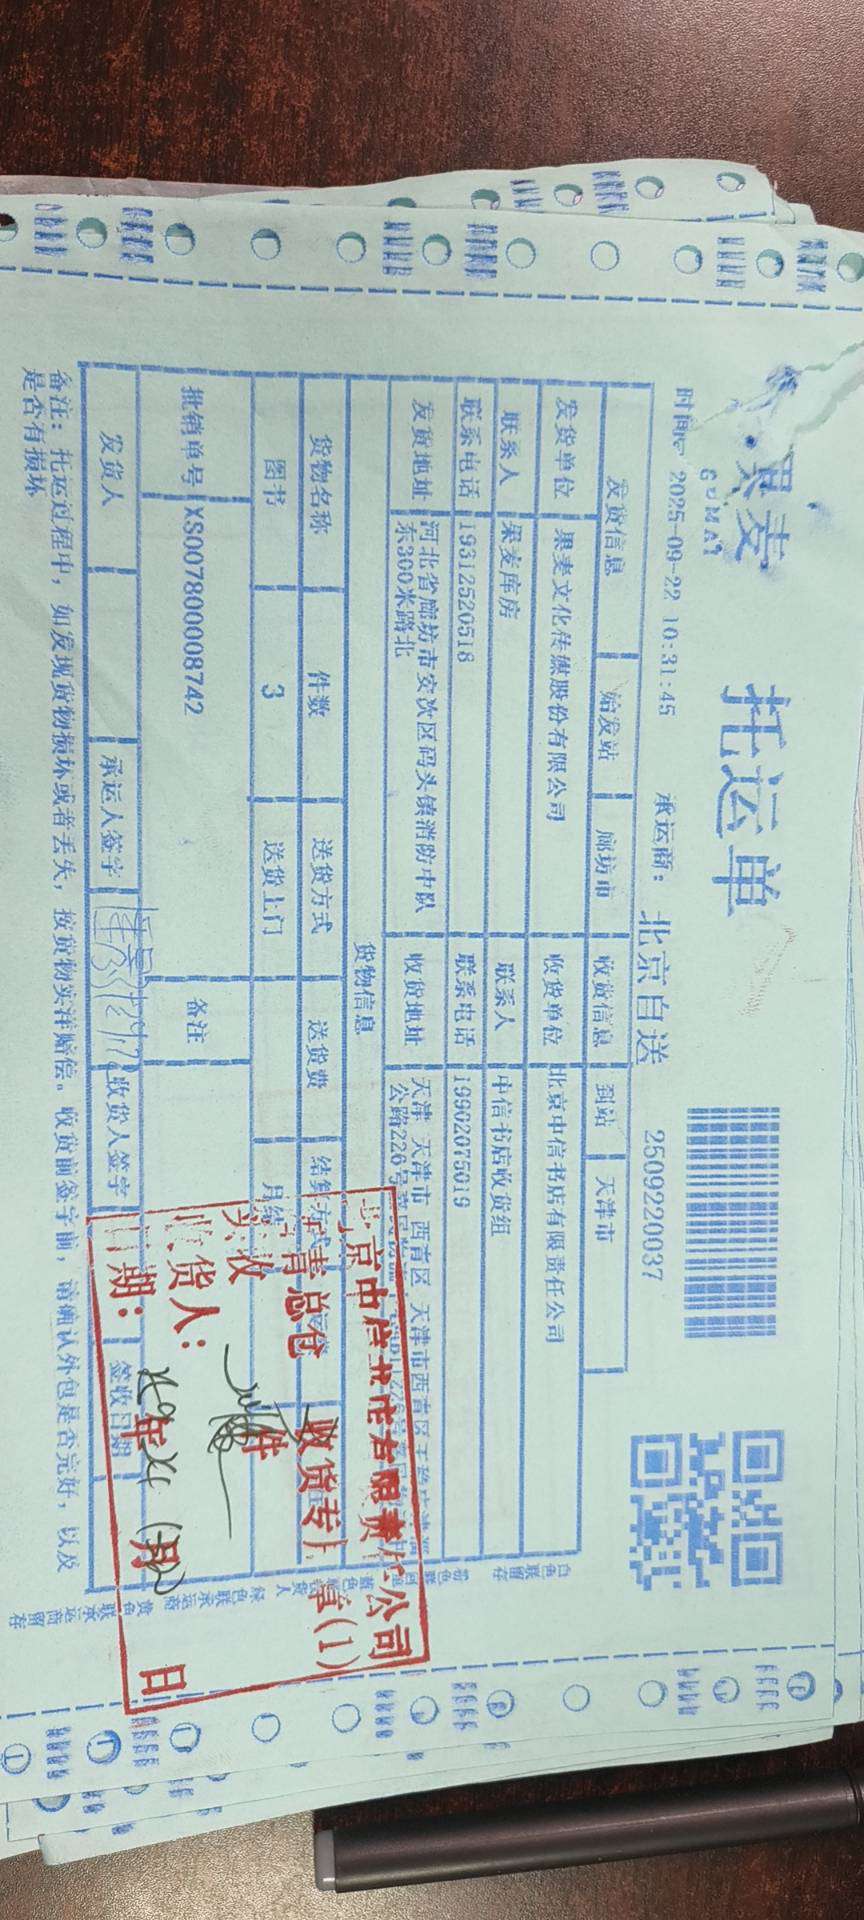 果麦
GUMAI
托运单
2509220037
时间: 2025-09-22 10:31:45 承运商: 北京自送
发货信息 始发站 廊坊市 收货信息 到站 天津市
发货单位 果麦文化传媒股份有限公司 收货单位 北京中信书店有限责任公司
联系人 果麦库房 联系人 中信书店收货组
联系电话 19312520518 联系电话 19902075019
发货地址 河北省廊坊市安次区码头镇消防中队东300米路北 收货地址 天津 天津市 西青区 天津市西青区
公路226号
货物信息
货物名称 件数 送货方式 送货费 结算方式
图书 3 送货上门 月结
批销单号 XS007800008742 备注
发货人 承运人签字 收货人签字 签收日期
备注: 托运过程中, 如发现货物损坏或者丢失, 按货物实洋赔偿。收货前签字前, 请确认外包是否完好, 以及
是否有损坏
北京中信书店有限责任公司
青总仓 收货专 章(1)
实收 件
收货人:
日期: 年 月 日